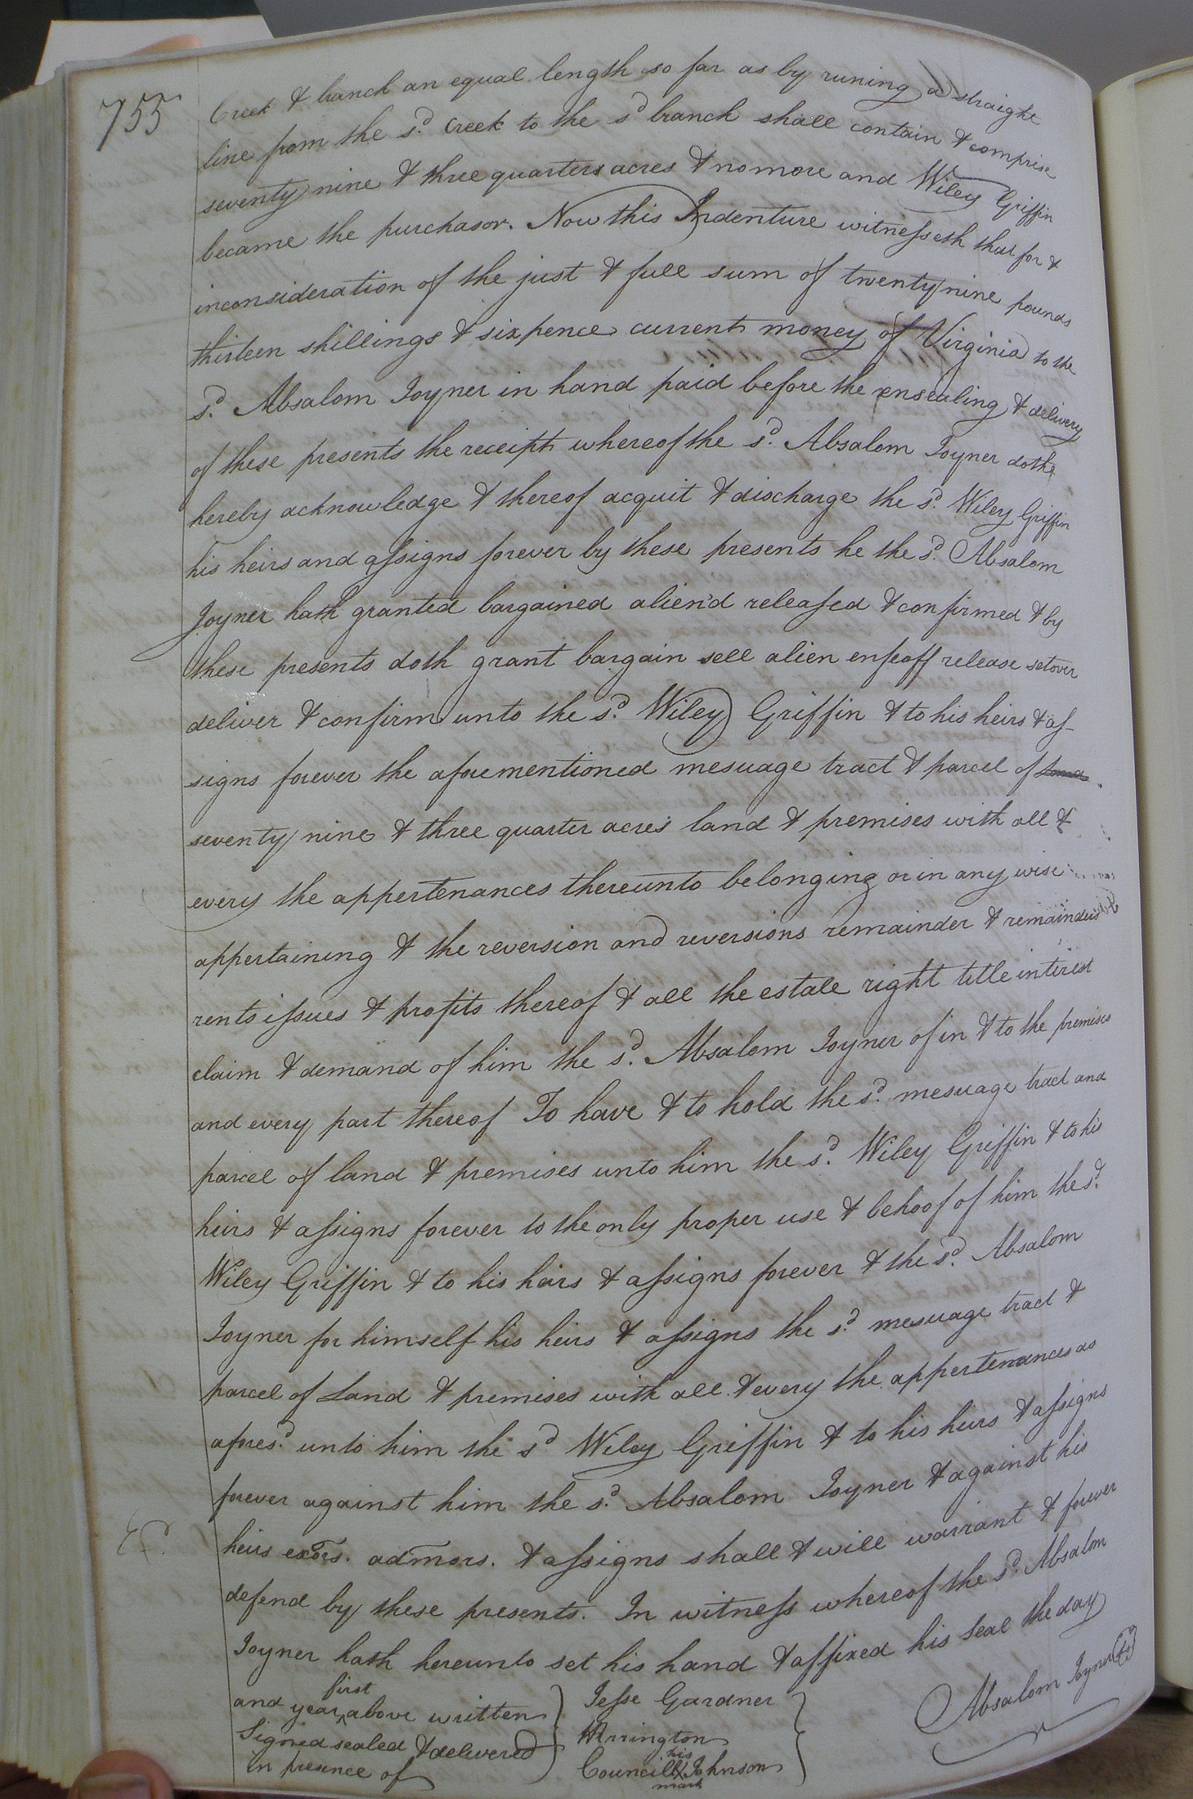 755
Creek & branch an equal length so far as by runing a straight
line from the sd. Creek to the sd branch shall contain & comprise
seventy nine & three quarters acres & no more and Wiley Griffin
became the purchasor. Now this Indenture witnesseth that for &
inconsideration of the just & full sum of twenty nine pounds
thirteen shillings & sixpence current money of Virginia to the
sd. Absalom Joyner in hand paid before the ensealing & delivery
of these presents the receipt whereof the sd. Absalom Joyner dothe
hereby acknowledge & thereof acquit & discharge the sd. Wiley Griffin
his heirs and assigns forever by these presents he the sd. Absalom
Joyner hath granted bargained alien'd released & confirmed & by
these presents doth grant bargain sell alien enfeoff release setover
deliver & confirm unto the sd. Wiley Griffin & to his heirs & as-
signs forever the aforementioned mesuage tract & parcel of
seventy nine & three quarter acres land & premises with all &
every the appertenances thereunto belonging or in any wise
appertaining & the reversion and reversions remainder & remainders
rents issues & profits thereof & all the estate right title interest
claim & demand of him the sd. Absalom Joyner of in & to the premises
and every part thereof To have & to hold the sd. mesuage tract and
parcel of land & premises unto him the sd. Wiley Griffin & to his
heirs & assigns forever to the only proper use & behoof of him the sd.
Wiley Griffin & to his heirs & assigns forever & the sd. Absalom
Joyner for himself his heirs & assigns the sd. mesuage tract &
parcel of Land & premises with all & every the appertenances as
afores.d unto him the sd Wiley Griffin & to his heirs & assigns
forever against him the sd. Absalom Joyner & against his
heirs exors. admors. & assigns shall & will warrant & forever
defend by these presents. In witness whereof the sd. Absalom
Joyner hath hereunto set his hand & affixed his Seal the day
and year first above written
Signed sealed & delivered
in presence of
Jesse Gardner
Arrington
Councill his mark Johnson
Absalom Joyner